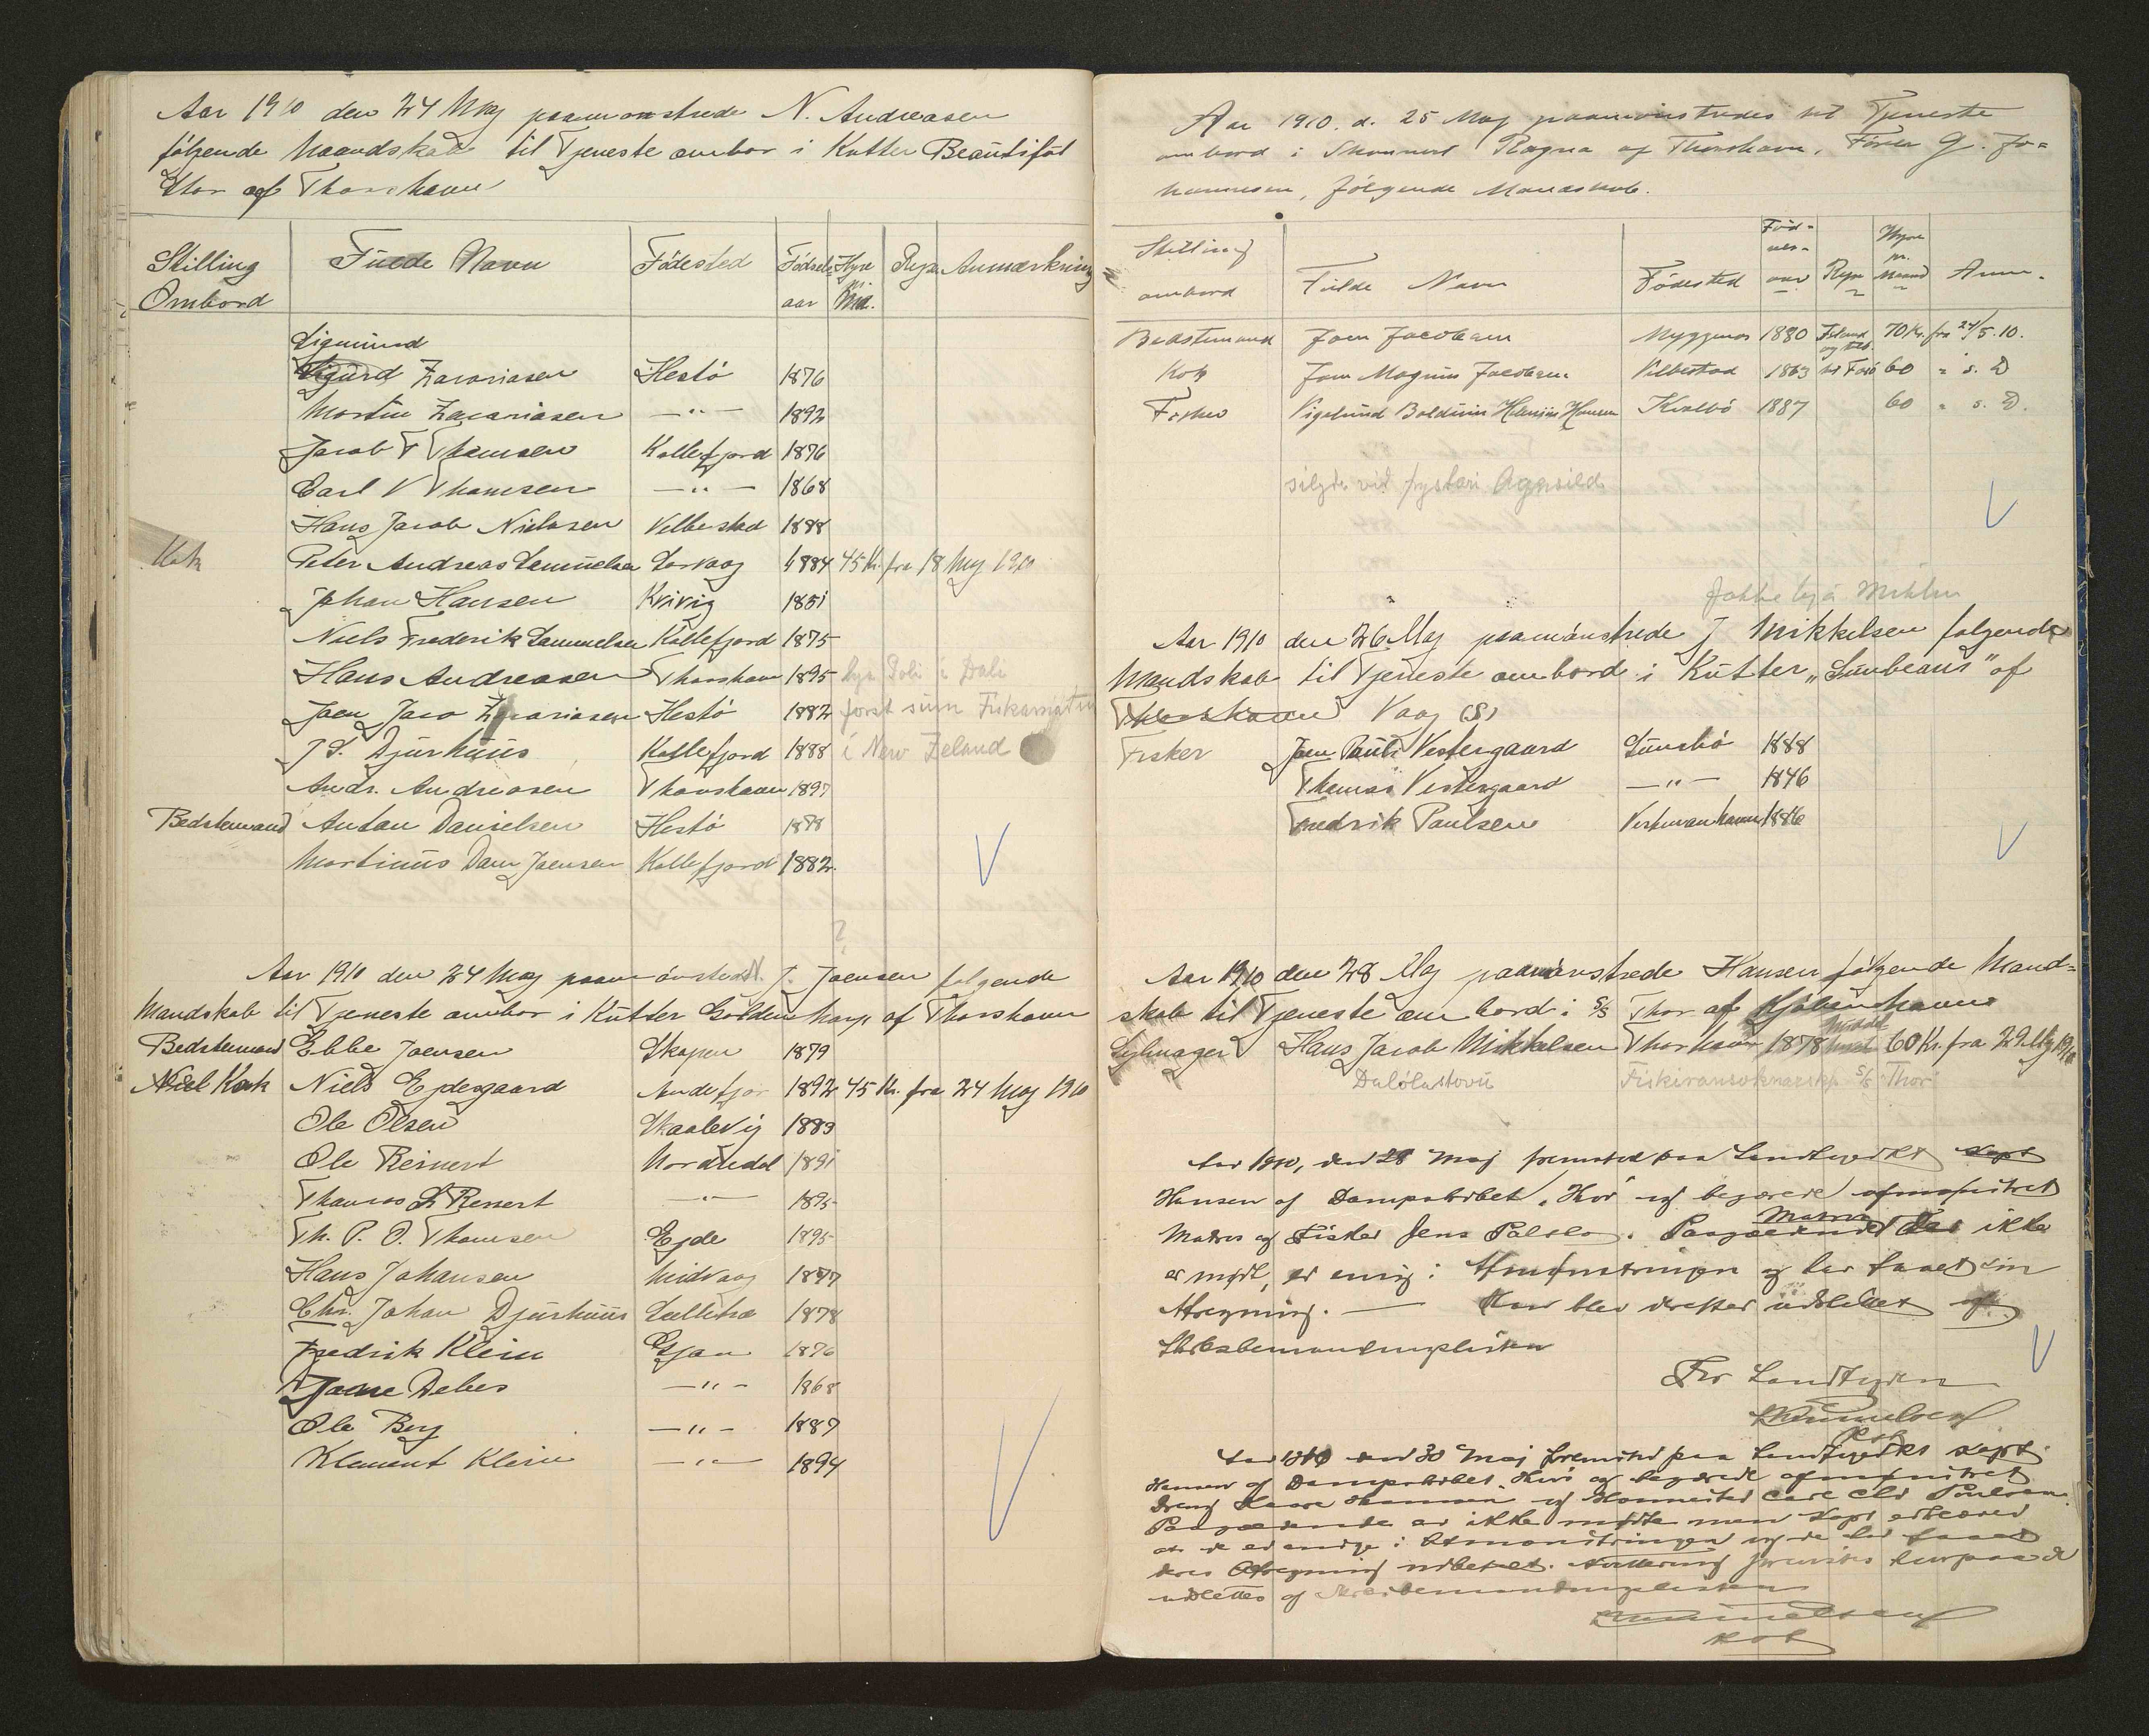 Aar 1910 den 24 May paamønstrede N. Andreasen
følgende Mandskab til Tjeneste ombor i Kutter Beautiful
Star af Thorshavn
Stilling Ombord Fulde Navn Fødested Fødsels aar Hyre pr. Md. Rejse Anmærkning
Sigmund
Sigurd Zacariasen Hestö 1876
Martin Zacariasen —"— 1892
Jacob T Thomsen Kollefjord 1876
Carl V Thomsen —"— 1868
Hans Jacob Nielsen Velbestad 1888
Kok Peter Andreas Samuelsen Sorvaag 1884 45 Kr. fra 18 May 1910
Johan Hansen Kvivig 1851
Niels Frederik Samuelsen Kollefjord 1875
Hans Andreasen Thorshavn 1895 Poli i Dali
Joen Jaco Zacariasen Hestö 1882 forst sum
J S. Djurhuus Kollefjord 1888 i New Zeland
Andr. Andreasen Thorshavn 1897
Bedstemand Anton Danielsen Hestö 1878
Martinus Dam Joensen Kollefjord 1882
?
Aar 1910 den 24 May paamönstred J. Joensen følgende
Mandskab til Tjeneste ombor i Kutter Golden Harp af Thorshavn
Bedstemand Ebbe Joensen Skopen 1879
Kok Niels Ejdesgaard Andefjor 1892 45 Kr. fra 24 May 1910
Ole Olsen Skaalevig 1889
Ole Reinert Nordredal 1891
Thomas Z Reinert —"— 1895
Th. P. O. Thomsen Ejde 1895
Hans Johansen Midvaag 1877
Chr. Johan Djurhuus 1878
Fredrik Klein Gjov 1876
Debes —"— 1868
Ole Berg —"— 1889
Klement Klein —"— 1894
Aar 1910. d. 25 May paamönstredes til Tjeneste
ombord i Skonnert Ragna af Thorshavn, Fører G. Jo=
hannesen, følgende Mandskab.
Stilling ombord Fulde Navn Fødested Fød- sels- aar Rejse Hyre pr. Maaned Anm.
Bedstemand Joen Jacobsen Myggenæs 1880 Island 70 Kr. fra 24/5 10.
Kok Joen Magnus Jacobsen Velbestad 1863 60 " s. D
Fisker Hansen Kvalbö 1887 60 " s. D.
vid Agnsild
Aar 1910 den 26 May paamönstrede J Mikkelsen følgende
Mandskab til Tjeneste ombord i Kutter „Sunbeam" af
Thorshavn Vaag (S)
Fisker Joen Pauli Vestergaard Sumbö 1888
Thomas Vestergaard —"— 1846
Fredrik Paulsen Vestmanhavn 1886
Aar 1910 den 28 May paamönstrede Hansen følgende Mand=
skab til Tjeneste om bord i S/S Thor af Kjöbenhavn
Hans Jacob Mikkelsen Thorshavn 1878 60 Kr. fra 29 May 1910
S/S Thor
Aar 1910, den 28 Maj fremstod paa Landfogedkt Kapt
Hansen af Dampskibet „Thor" og begærede afmønstret
Matros og Fisker Jens Matros Paagældende ikke
er mødt, er enig i Afmønstringen og har faaet sin
Afregning. — Han blev derefter udslettet af
Skibsbemandingslisten
For Landfogden
Aar 1910 den 30 Maj fremstod paa Landfogedkt Kapt.
Hansen af Dampskibet „Thor" og begærede afmønstret
Dreng og Hovmester Carl
Paagældende er ikke mødte men Kapt erklærer
at de er enige i Afmønstringen og de har faaet
deres Afregning udbetalt.
udslettes af Skibsbemandingslisten